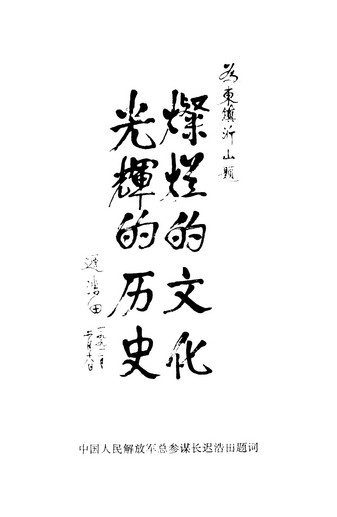 为東鎮沂山题
燦烂的文化
光輝的历史
遲浩田
一九九一年
二月十六日
中国人民解放军总参谋长迟浩田题词